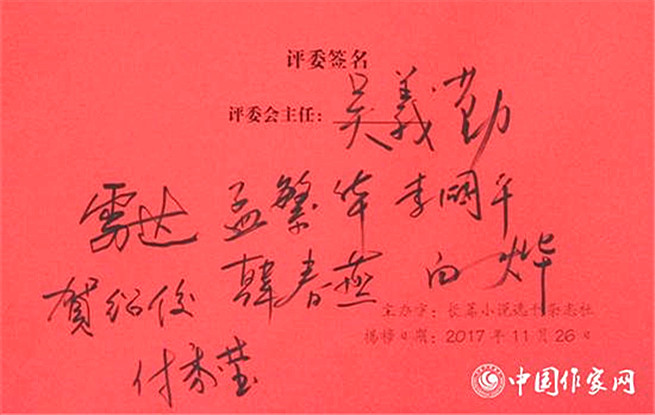 评委签名
评委会主任：吴義勤
雷达 孟繁华 李國平
贺绍俊 韩春燕 白烨
主办方：长篇小说选刊杂志社
揭榜日期：2017年11月26日
付秀莹
中国作家网